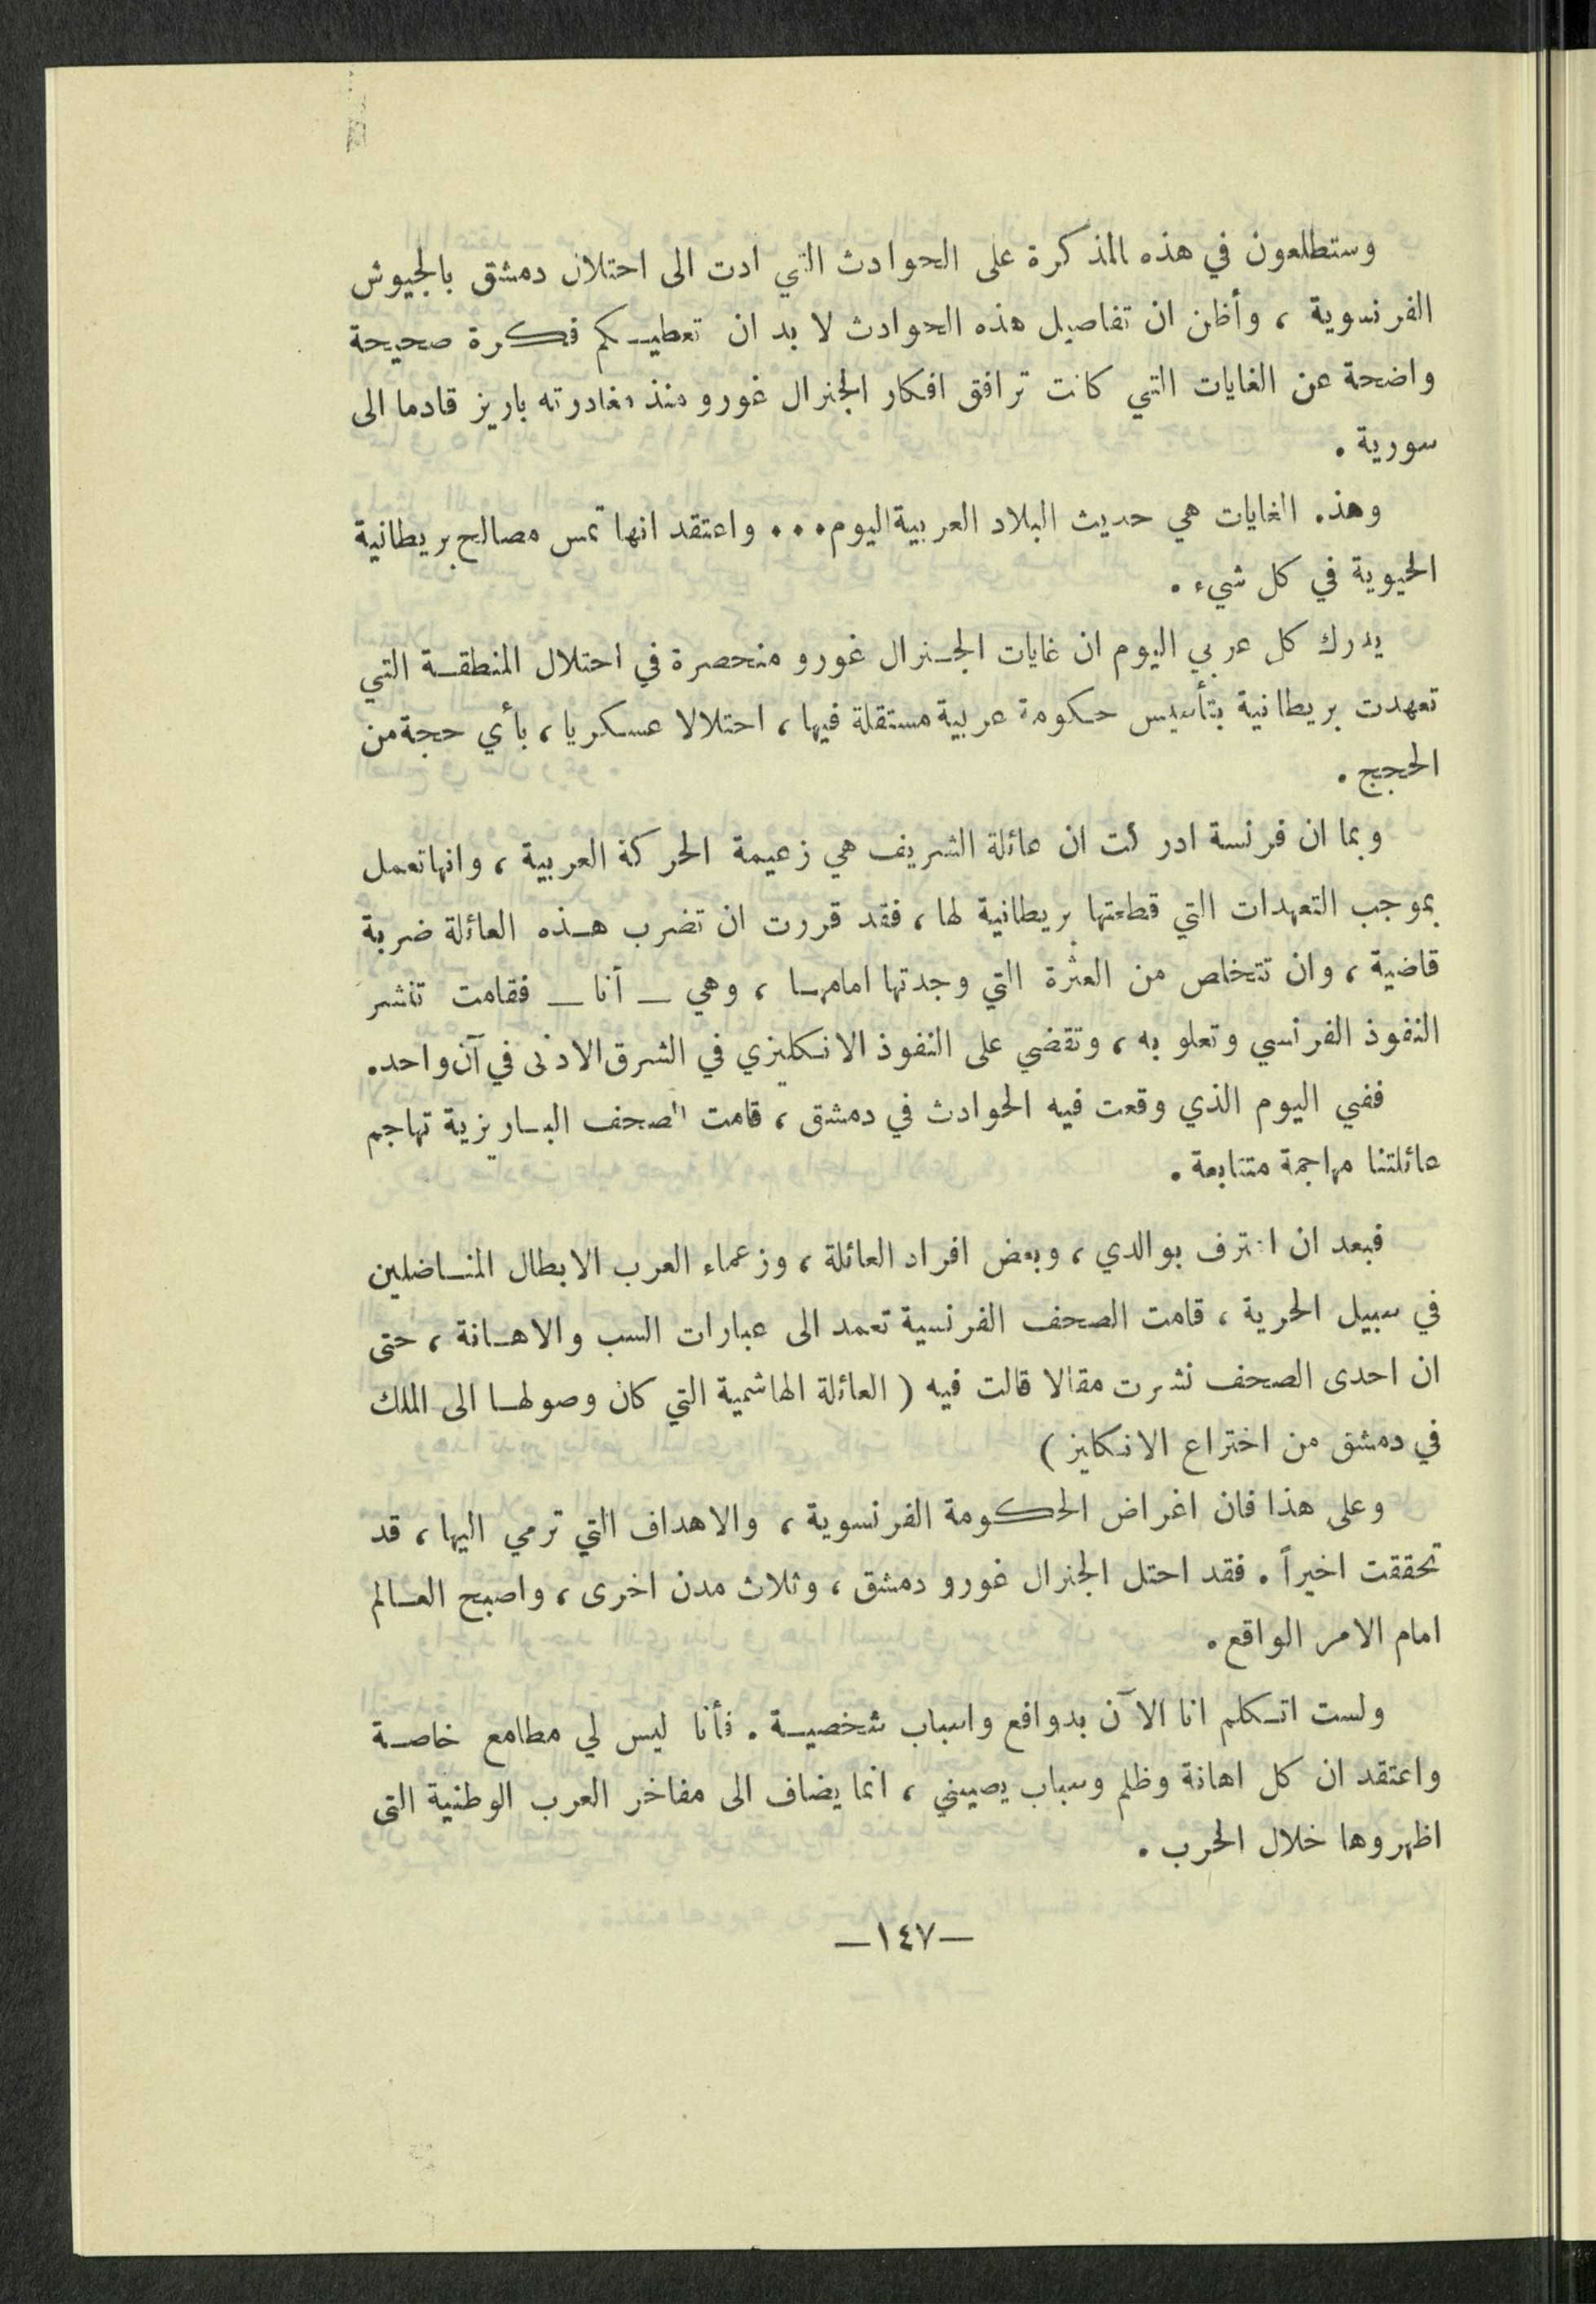 وستطلعون في هذه المذكرة على الحوادث التي ادت الى احتلال دمشق بالجيوش
الفرنسوية ، وأظن ان تفاصيل هذه الحوادث لا بد ان تعطيكم فكرة صحيحة
واضحة عن الغايات التي كانت ترافق افكار الجنرال غورو منذ مغادرته باريز قادما الى
سورية .
وهذه الغايات هي حديث البلاد العربية اليوم ... واعتقد انها تمس مصالح بريطانية
الحيوية في كل شيء .
يدرك كل عربي اليوم ان غايات الجنرال غورو منحصرة في احتلال المنطقة التي
تعهدت بريطانية بتأسيس حكومة عربية مستقلة فيها ، احتلالا عسكريا ، بأي حجة من
الحجج .
وبما ان فرنسة ادركت ان عائلة الشريف هي زعيمة الحركة العربية ، وانها تعمل
بموجب التعهدات التي قطعتها بريطانية لها ، فقد قررت ان تضرب هذه العائلة ضربة
قاضية ، وان تتخلص من العثرة التي وجدتها امامها ، وهي — أنا — فقامت تنشر
النفوذ الفرنسي وتعلو به ، وتقضي على النفوذ الانكليزي في الشرق الادنى في آن واحد .
ففي اليوم الذي وقعت فيه الحوادث في دمشق ، قامت الصحف الباريزية تهاجم
عائلتنا مهاجمة متتابعة .
فبعد ان اعترف بوالدي ، وبعض افراد العائلة ، وزعماء العرب الابطال المناضلين
في سبيل الحرية ، قامت الصحف الفرنسية تعمد الى عبارات السب والاهانة ، حتى
ان احدى الصحف نشرت مقالا قالت فيه ( العائلة الهاشمية التي كان وصولها الى الملك
في دمشق من اختراع الانكليز )
وعلى هذا فان اغراض الحكومة الفرنسوية ، والاهداف التي ترمي اليها ، قد
تحققت اخيراً . فقد احتل الجنرال غورو دمشق ، وثلاث مدن اخرى ، واصبح العالم
امام الامر الواقع .
ولست اتكلم انا الآن بدوافع واسباب شخصية . فأنا ليس لي مطامع خاصة
واعتقد ان كل اهانة وظلم وسباب يصيبني ، انما يضاف الى مفاخر العرب الوطنية التي
اظهروها خلال الحرب .
—١٤٧—